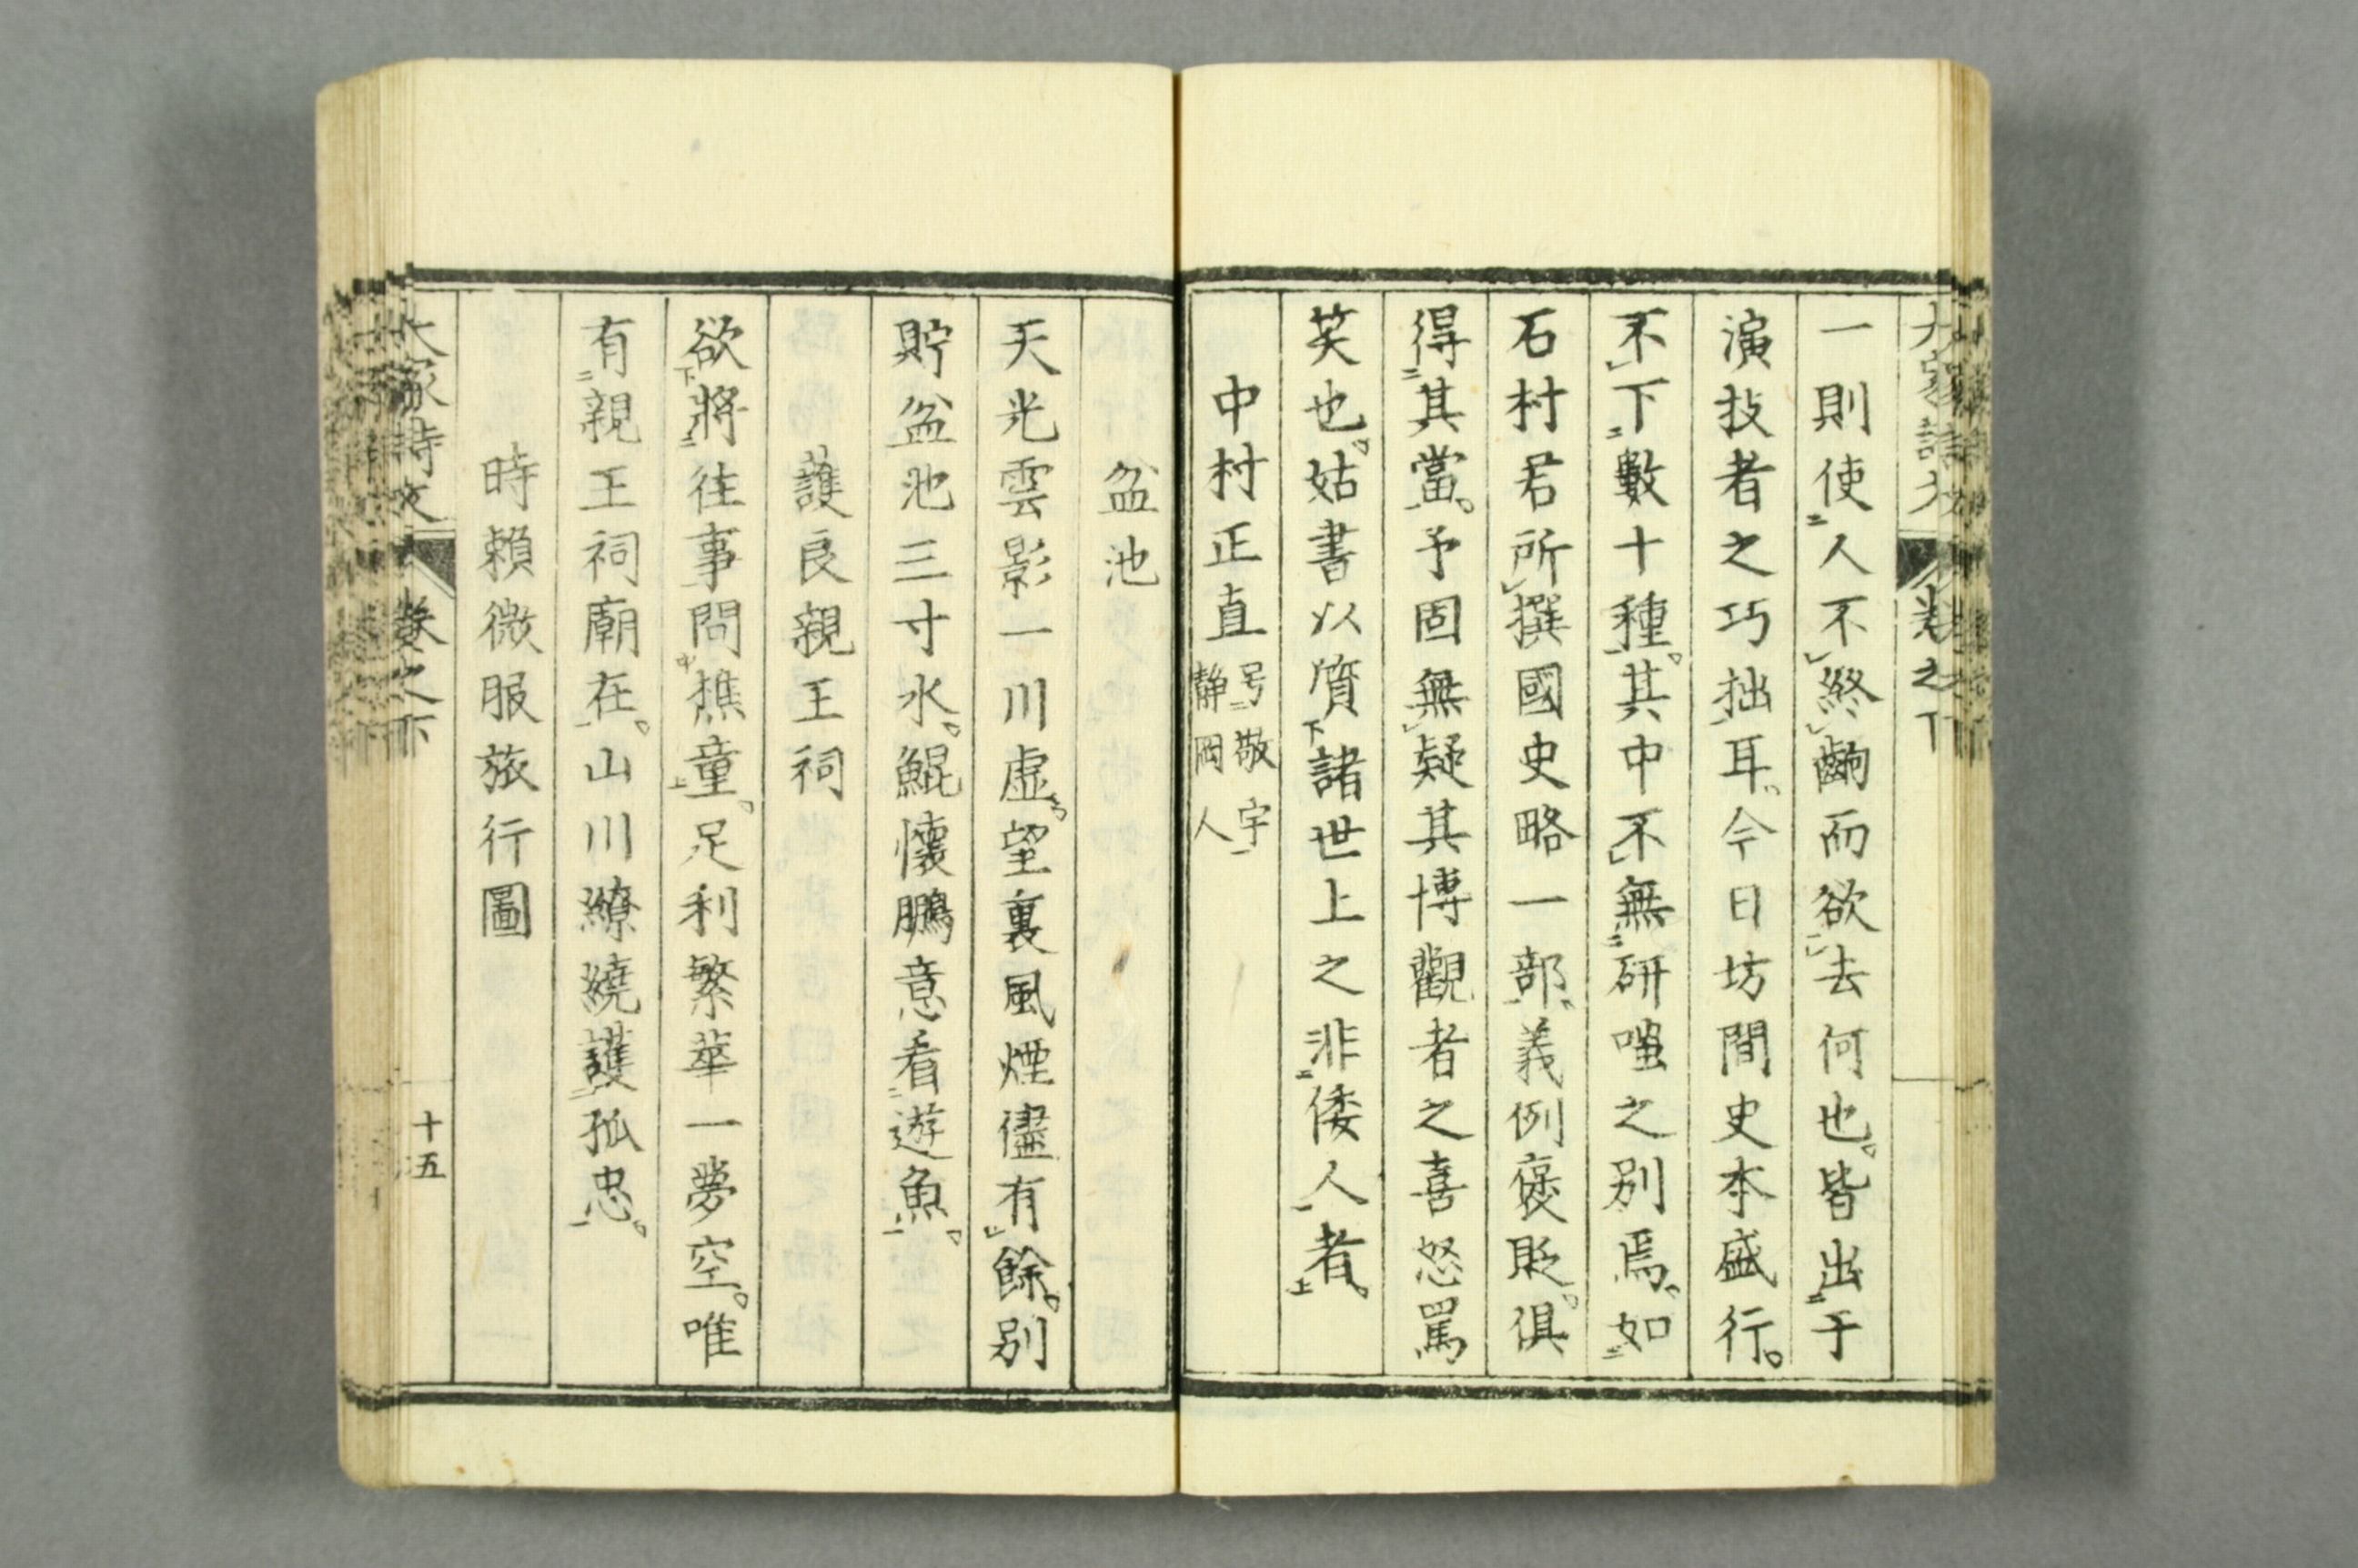 一則使人不終齣而欲去何也皆出于
演技者之巧拙耳今日坊間史本盛行。
不下數十種。其中不無研嗤之別焉。如
石村君所撰國史略一部義例褒貶。俱
得其當。予固無疑其博觀者之喜怒罵
笑也。姑書以質諸世上之非倭人者。
中村正直 号敬宇 静岡人
盆池
天光雲影一川虛望裏風煙儘有餘。別
貯盆池三寸水。鯤懷鵬意看遊魚。
護良親王祠
欲將往事問樵童。足利繁華一夢空。唯
有親王祠廟在。山川繚繞護孤忠。
時賴微服旅行圖
大家詩文 卷之下
十五